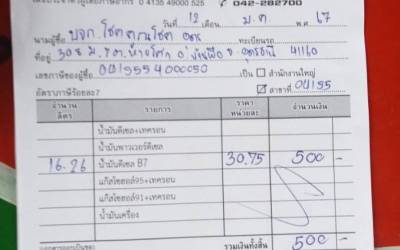 เลขประจำตัวผู้เสียภาษีอากร 0 4135 49000 525 042-282700
วันที่ 12 เดือน ม.ค พ.ศ. 67
นามผู้ซื้อ บจก. โชคคูณโชค ทะเบียนรถ
ที่อยู่ 308 ม. 8 อ. บ้านผือ จ. อุดรธานี 41160
เลขภาษีของผู้ซื้อ 0419554000050 เป็น สำนักงานใหญ่
อัตราภาษีร้อยละ7 ✓ สาขาที่ 04155
จำนวนลิตร รายการ ราคาหน่วยละ จำนวนเงิน
น้ำมันดีเซล+เทครอน
น้ำมันพาวเวอร์ดีเซล
16.26 น้ำมันดีเซล B7 30.75 500 -
แก๊สโซฮอล์95+เทครอน
แก๊สโซฮอล์91+เทครอน
น้ำมันเครื่อง
รวมเงินทั้งสิ้น 500 -